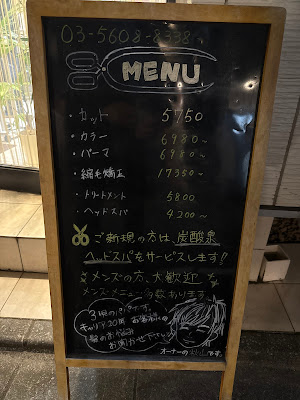 03-5608-8338
MENU
・カット 5750
・カラー 6980～
・パーマ 6980～
・縮毛矯正 17350～
・トリートメント 5800
・ヘッドスパ 4.200～
ご新規の方は、炭酸泉
ヘッドスパをサービスします!!
メンズの方、大歓迎
メンズメニュー多数あります。
3児のパパです
キャリア20年
髪のお悩み
お聞かせ下さい
オーナーの松山です。